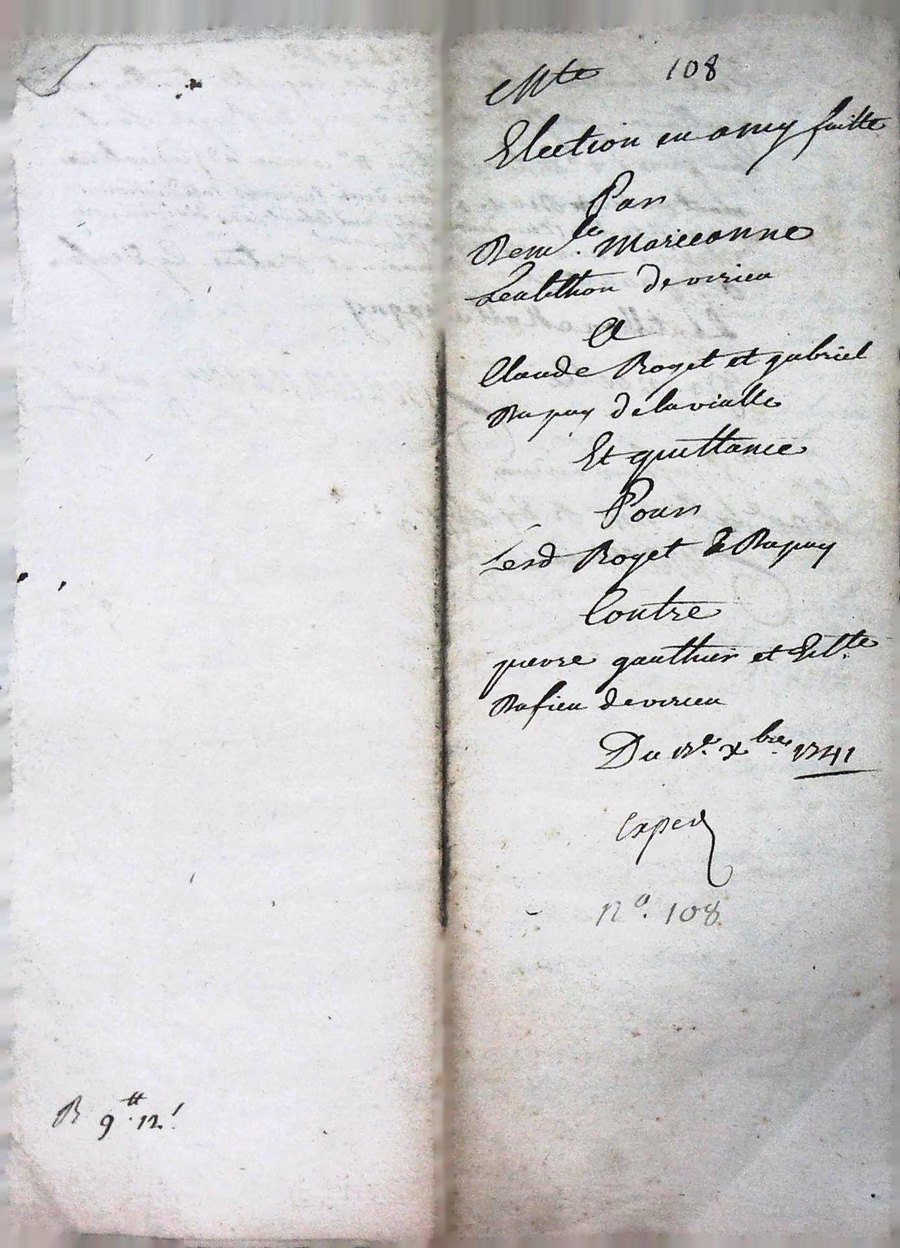 108
Election en amy faitte
Par
Dem.lle Marieanne
Leabthon de virieu
A
Claude Roget et gabriel
Rapuy de la vialle
Et quittance
Pour
Lesd Roget & Rapuy
Contre
pierre gauthier et
Rafieu de virieu
Du 12e xbre 1741
Exped
no. 108
R 9tt. 12s